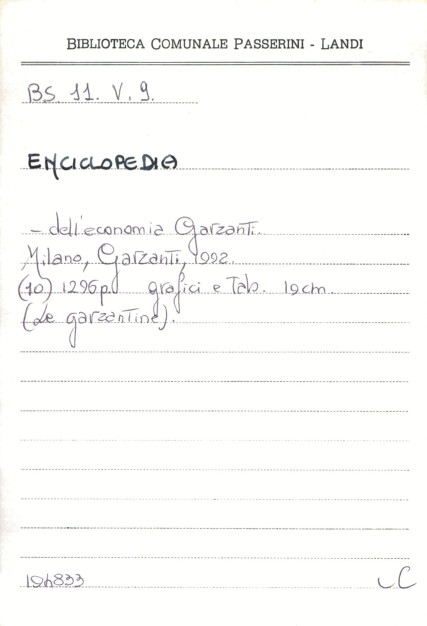 BIBLIOTECA COMUNALE PASSERINI - LANDI
BS. 11. V. 9.
ENCICLOPEDIA
- dell'economia Garzanti.
Milano, Garzanti, 1992.
(10) 1296 p. grafici e Tab. 19 cm.
(Le garzantine).
194833